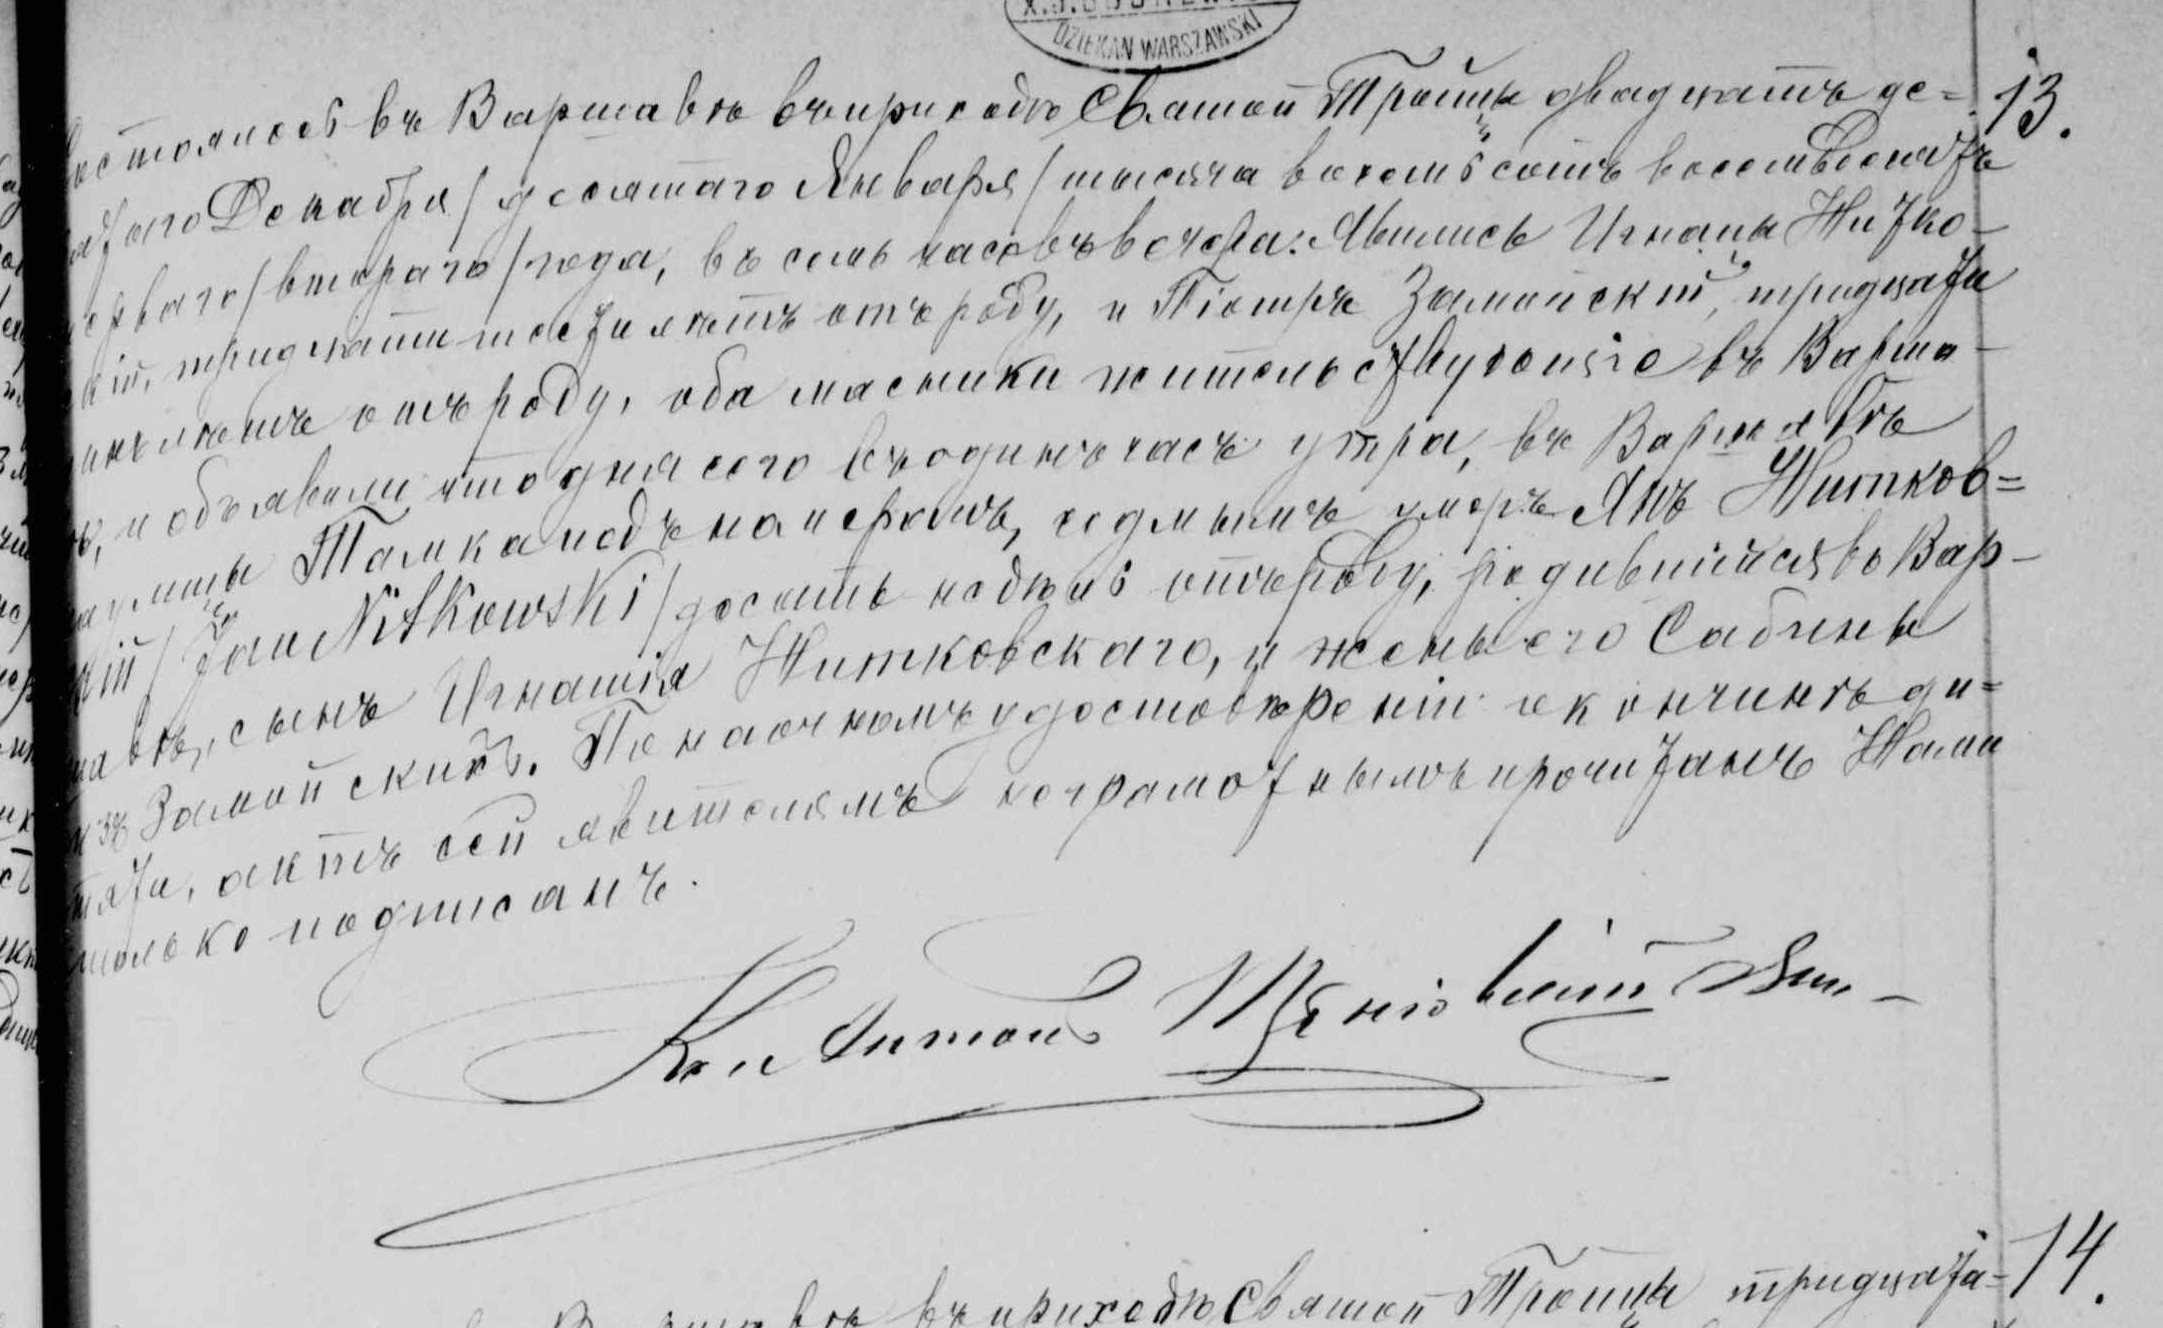 DZIEKAN WARSZAWSKI
13.
Состоялось въ Варшавѣ въ приходѣ Святой Троицы двадцать де-
Декабря / десятаго Января / тысяча восемьсотъ восемьдесятъ
перваго / втораго / года, въ семь часовъ вечера. Явились Игнацы Нитко-
кій, тридцати шести лѣтъ отъ роду, и Піотръ Замойскій, тридцати
лѣтъ отъ роду, оба масники жительствующіе въ Варша-
вѣ, и объявили что дня сего въ одинъ часъ утра, въ Варшавѣ
улицы Тамка подъ номеромъ, седмымъ умеръ Янъ Нитков-
кій / Jan Nitkowski / десять недѣль отъ роду, родившійся въ Вар-
шавѣ, сынъ Игнатія Нитковскаго, и жены его Сабины
изъ Замойскихъ. По наочномъ удостовѣреніи о кончинѣ ди-
тяти, актъ сей явителямъ неграмотнымъ прочитанъ Нами
только подписанъ.
Кс. Антонъ
14.
въ приходѣ Святой Троицы тридцата-